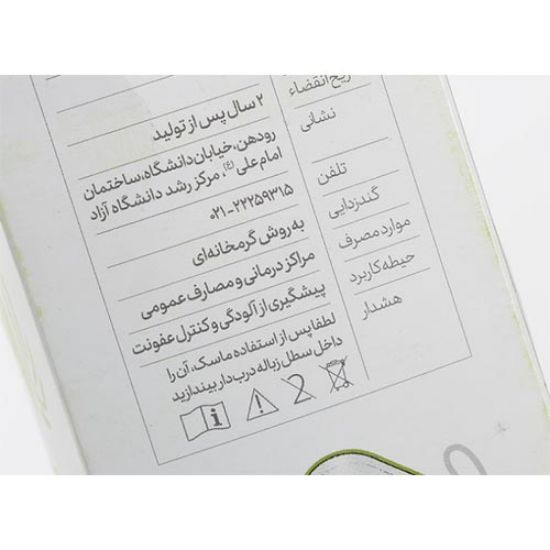 تاریخ انقضاء ۲ سال پس از تولید
نشانی رودهن، خیابان دانشگاه، ساختمان
امام علی (ع)، مرکز رشد دانشگاه آزاد
تلفن ۰۲۱-۲۲۲۵۹۳۱۵
گندزدایی به روش گرمخانه‌ای
موارد مصرف مراکز درمانی و مصارف عمومی
حیطه کاربرد پیشگیری از آلودگی و کنترل عفونت
هشدار لطفا پس از استفاده ماسک، آن را
داخل سطل زباله درب‌دار بیندازید